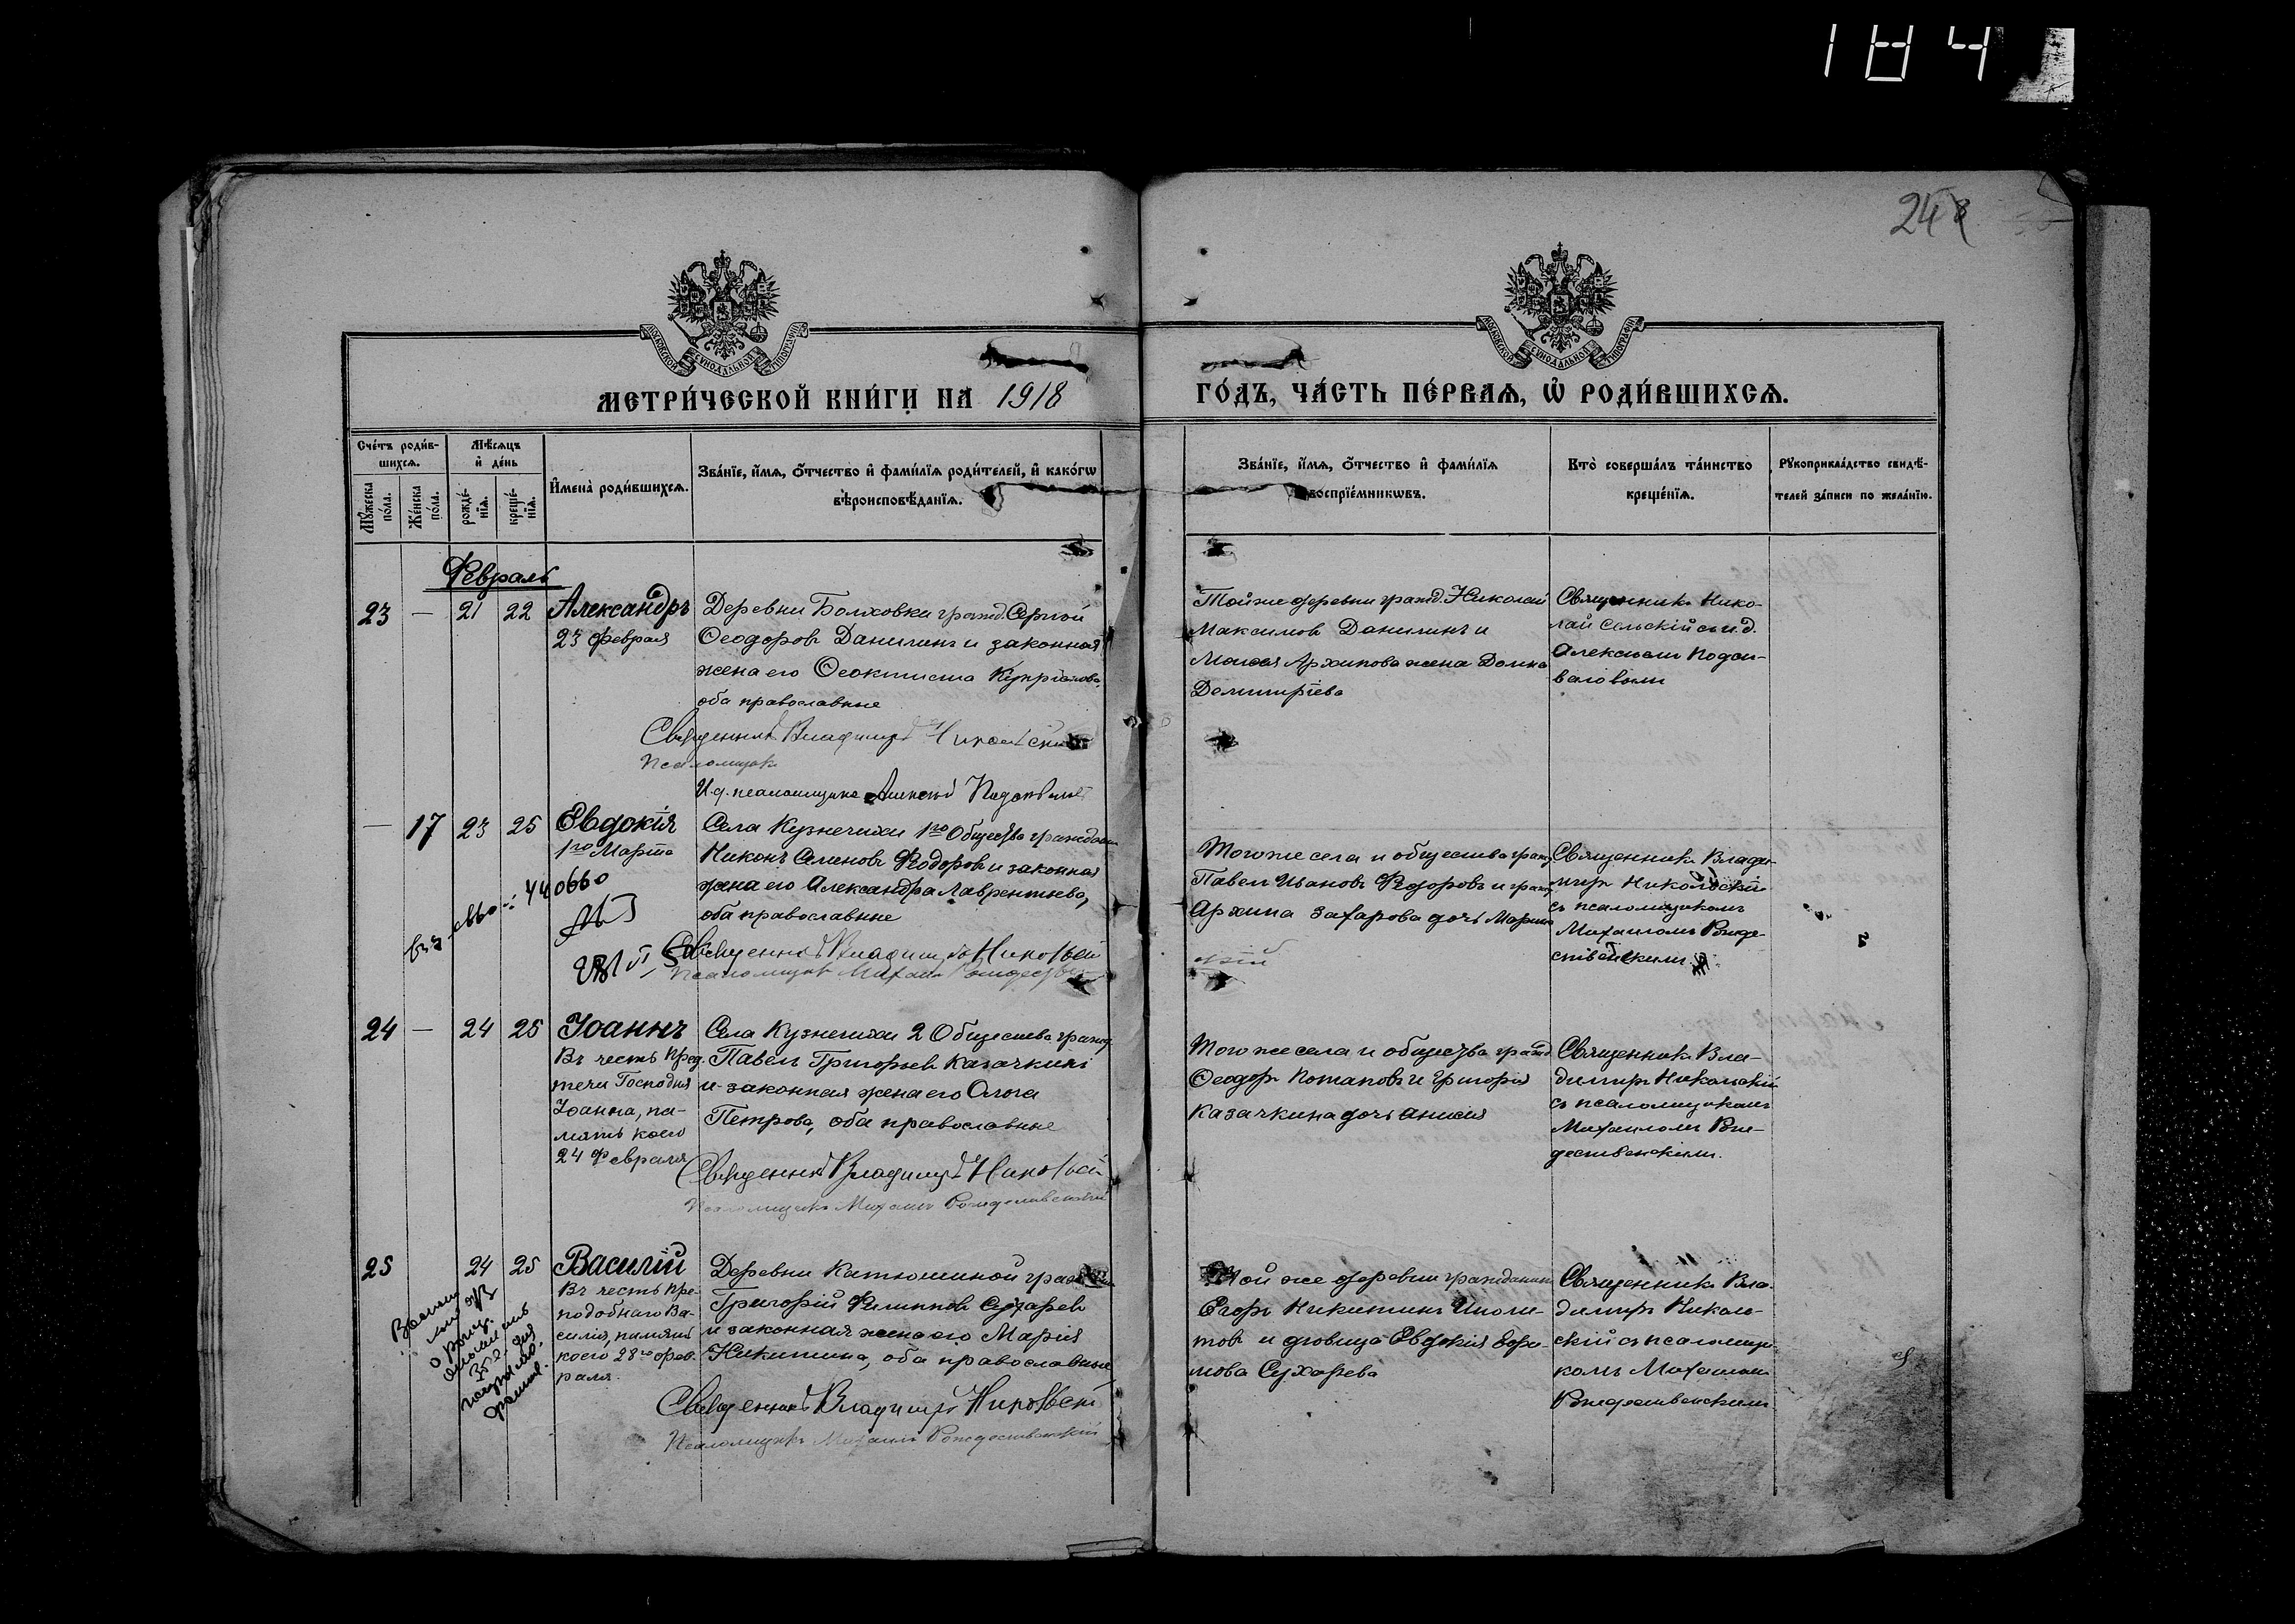 184
24
МОСКОВСКОЙ СУНОДАЛЬНОЙ ТИПОГРАФІИ
МОСКОВСКОЙ СУНОДАЛЬНОЙ ТИПОГРАФІИ
МЕТРИ́ЧЕСКОЙ КНИ́ГИ НА 1918
ГО́ДЪ, ЧА́СТЬ ПЕ́РВАѦ, Ѡ РОДИ́ВШИХСѦ.
Сче́тъ роди́в-
шихсѧ.
Мꙋ́жеска по́ла.
Же́нска по́ла.
Мѣ́сѧцъ
и҆ де́нь
рожде́-
нїѧ.
креще́-
нїѧ.
И҆мена̀ роди́вшихсѧ.
Зва́нїе, и҆́мѧ, ѻ҆́тчество и҆ фами́лїѧ роди́телей, и҆ како́гѡ
вѣроисповѣ́данїѧ.
Зва́нїе, и҆́мѧ, ѻ҆́тчество и҆ фами́лїѧ
воспрїе́мникѡвъ.
Кто̀ соверша́лъ та́инство
креще́нїѧ.
Рꙋкоприкла́дство свидѣ́-
телей за́писи по жела́нїю.
Февраль
23 — 21 22 Александръ
23 февраля
Деревни Болховки гражд. Сергей
Ѳеодоровъ Данилинъ и законная
жена его Ѳеоктиста Купріанова,
оба православные
Священникъ Владимиръ Никольскій
Псаломщикъ
И.д. псаломщика Алексѣй
Тойже деревни гражд. Николай
Максимовъ Данилинъ и
Архипова жена Домна
Димитріева
Священникъ Нико-
лай Сельскій съ и.д.
Алексѣем
— 17 23 25 Евдокія
1го Марта
440660
Села Кузнечихи 1го Общества гражданинъ
Никонъ Семеновъ Ѳедоровъ и законная
жена его Александра Лаврентьева,
оба православные
Священникъ Владимиръ Никольскій
Псаломщикъ Михаилъ Рождественскій
Того же села и общества гражд.
Павелъ Ивановъ Ѳедоровъ и гражд.
Архипа Захарова дочь Марина
Священникъ Влади-
миръ Никольскій
съ псаломщикомъ
Михаиломъ Рожде-
ственскимъ
24 — 24 25 Іоаннъ
Въ честь Пред-
течи Господня
Іоанна, па-
мять коего
24 Февраля
Села Кузнечихи 2 Общества гражд.
Павелъ Григорьевъ Казачкинъ
и законная жена его Ольга
Петрова, оба православные
Священникъ Владимиръ Никольскій
Псаломщикъ Михаилъ Рождественскій
Того же села и общества гражд.
Ѳеодоръ Потаповъ и Григорія
Казачкина дочь Анисія
Священникъ Вла-
димиръ Никольскій
съ псаломщикомъ
Михаиломъ Рож-
дественскимъ.
25 24 25 Василій
Въ честь пре-
подобнаго Ва-
силія, память
коего 28го фев-
раля.
Деревни Катюшиной гражданинъ
Григорій Филипповъ Сухаревъ
и законная жена его Марія
Никитина, оба православные
Священникъ Владимиръ Никольскій
Псаломщикъ Михаилъ Рождественскій
Той же деревни гражданинъ
Егоръ Никитинъ Иполи-
товъ и вдовица Евдокія Ефи-
мова Сухарева
Священникъ Вла-
димиръ Николь-
скій съ псаломщи-
комъ Михаиломъ
Рождественскимъ